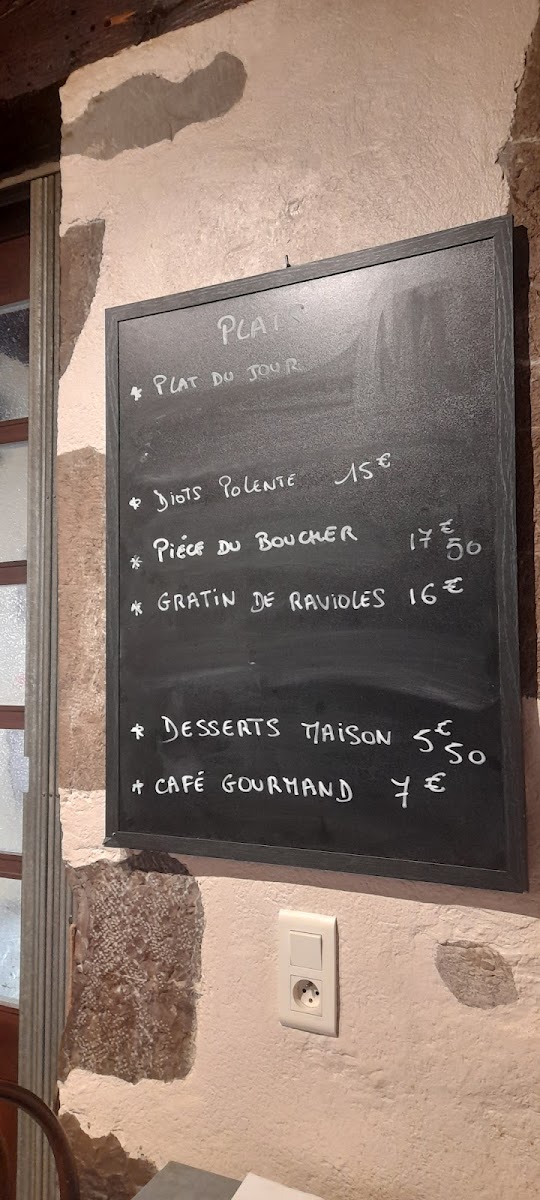 PLATS
* PLAT DU JOUR
* DIOTS POLENTE 15€
* PIÉCE DU BOUCHER 17€50
* GRATIN DE RAVIOLES 16€
* DESSERTS MAISON 5€50
* CAFÉ GOURMAND 7€